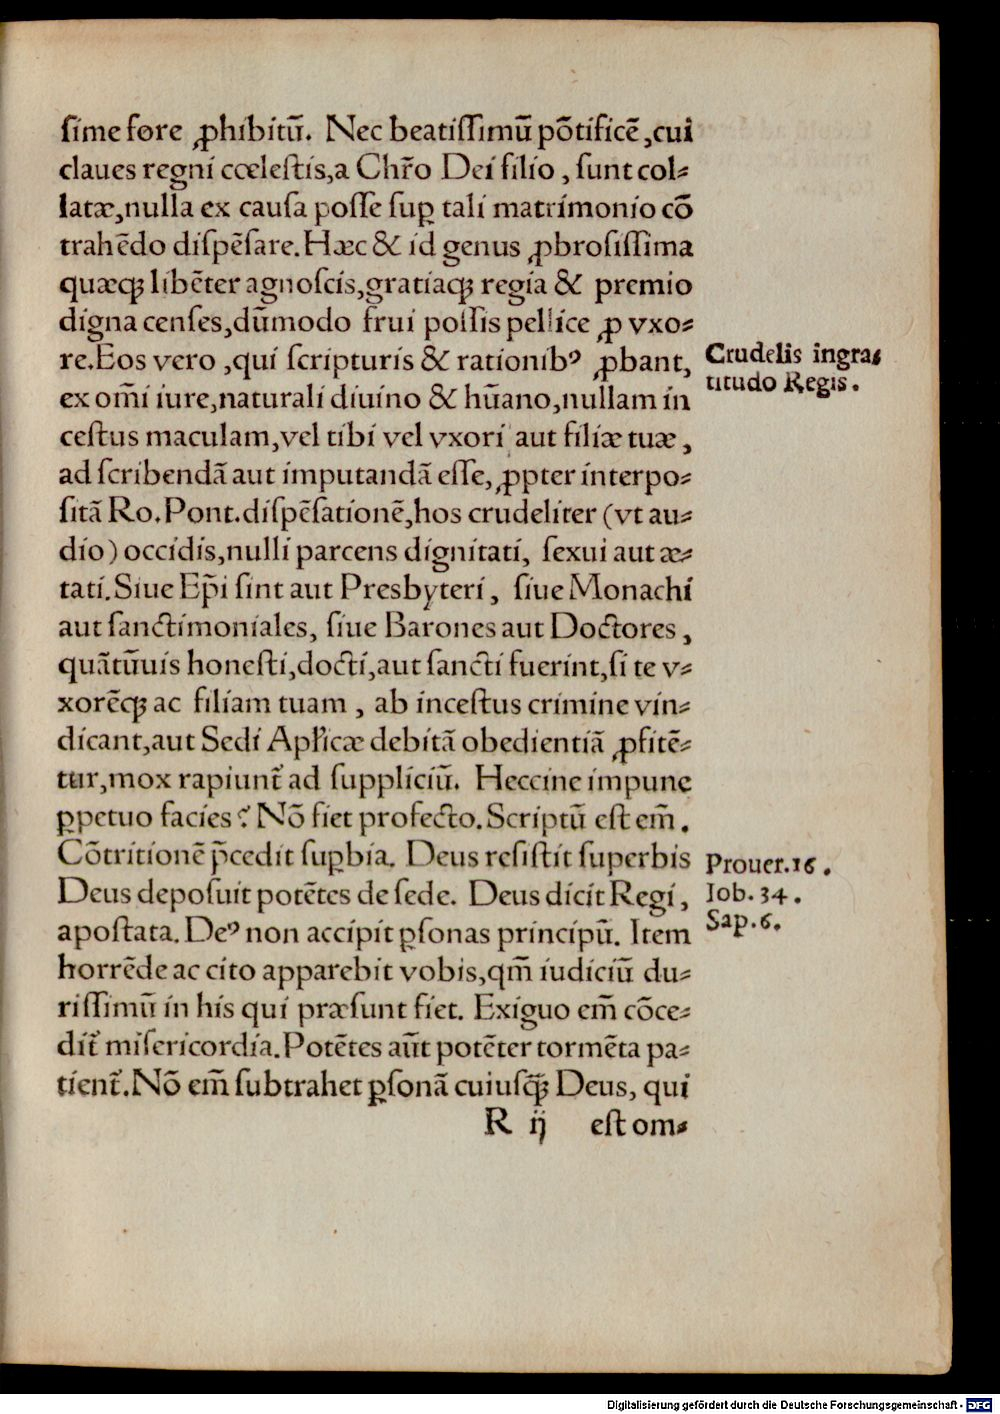 ſime fore ꝓhibitū. Nec beatiſſimū pōtificē, cui
claues regni cœleſtis, a Chr̄o Dei filio, ſunt col⸗
latæ, nulla ex cauſa poſſe ſuꝑ tali matrimonio cō
trahēdo diſpēſare. Hæc & id genus ꝓbroſiſſima
quæqꝫ libēter agnoſcis, gratiaqꝫ regia & premio
digna cenſes, dūmodo frui poſſis pellice ꝓ vxo⸗
re. Eos vero, qui ſcripturis & rationibꝰ ꝓbant,
Crudelis ingra⸗
titudo Regis.
ex om̄i iure, naturali diuino & hūano, nullam in
ceſtus maculam, vel tibi vel vxori aut filiæ tuæ,
ad ſcribendā aut imputandā eſſe, ꝓpter interpo⸗
ſitā Ro. Pont. diſpēſationē, hos crudeliter (vt au⸗
dio) occidis, nulli parcens dignitati, ſexui aut æ⸗
tati. Siue Ep̄i ſint aut Presbyteri, ſiue Monachi
aut ſanctimoniales, ſiue Barones aut Doctores,
quātūuis honeſti, docti, aut ſancti fuerint, ſi te v⸗
xorēqꝫ ac filiam tuam, ab inceſtus crimine vin⸗
dicant, aut Sedi Apl'icæ debitā obedientiā ꝓfitē⸗
tur, mox rapiunt᷑ ad ſuppliciū. Heccine impune
ꝑpetuo facies? Nō fiet profecto. Scriptū eſt em̄.
Cōtritionē p̄cedit ſuꝑbia. Deus reſiſtit ſuperbis
Prouer. 16.
Deus depoſuit potētes de ſede. Deus dicit Regi,
Iob. 34.
apoſtata. Deꝰ non accipit ꝑſonas principū. Item
Sap. 6.
horrēde ac cito apparebit vobis, qm̄ iudiciū du⸗
riſſimū in his qui præſunt fiet. Exiguo em̄ cōce⸗
dit᷑ miſericordia. Potētes aūt potēter tormēta pa⸗
tient᷑. Nō em̄ ſubtrahet ꝑſonā cuiuſqꝫ̄ Deus, qui
R ij eſt om⸗
Digitalisierung gefördert durch die Deutsche Forschungsgemeinschaft - DFG